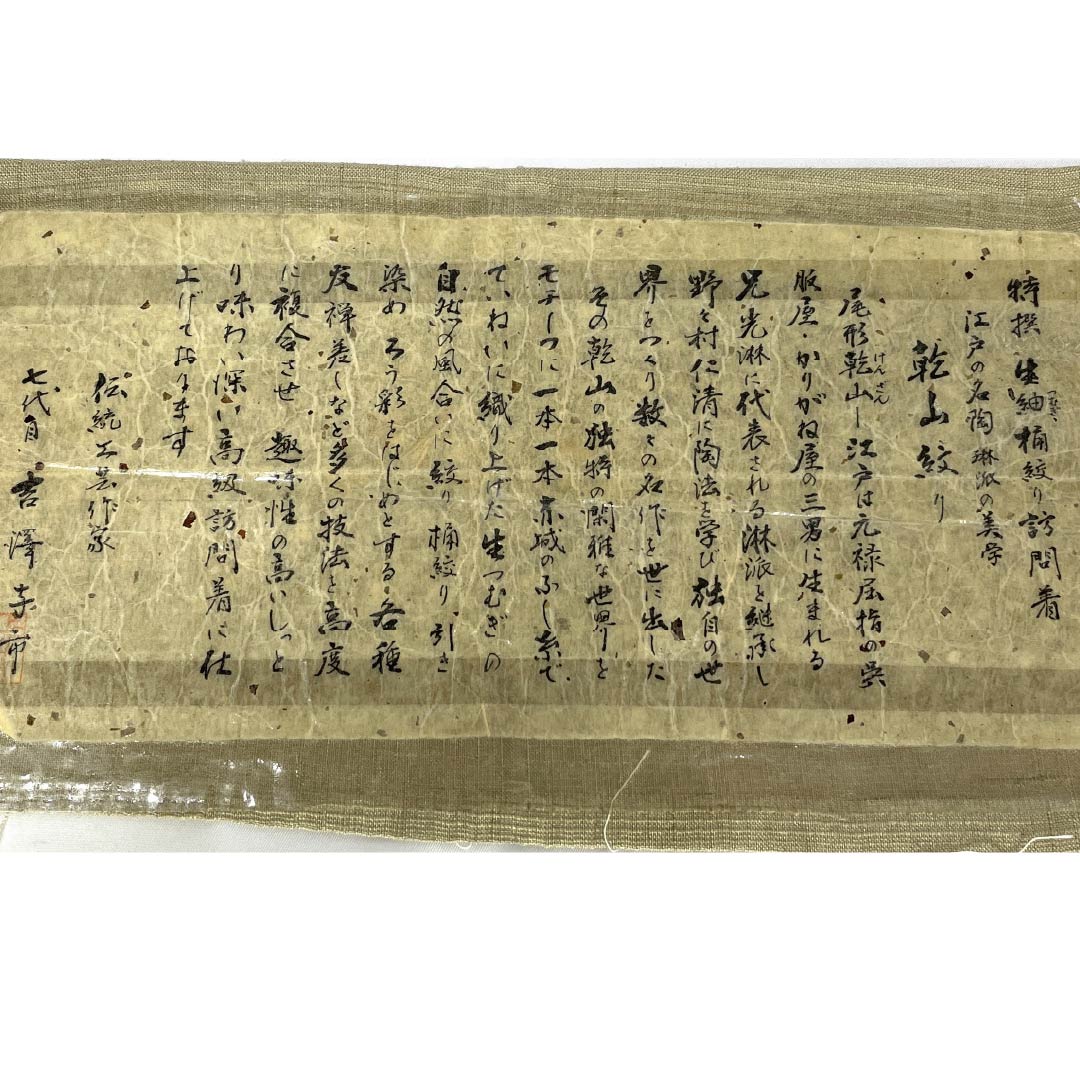 特撰 生紬桶絞り訪問着
つむぎ
江戸の名陶 琳派の美学
乾山絞り
尾形乾山ー江戸は元禄屈指の呉
けんざん
服屋・かりがね屋の三男に生まれる
兄光淋に代表される淋派を継承し
野々村仁清に陶法を学び独自の世
界をつくり数々の名作を世に出した
その乾山の独特の閑雅な世界を
モチーフに一本一本赤城のふし糸で
ていねいに織り上げた生つむぎの
自然の風合いに絞り桶絞り引き
染めろう彩をはじめとする各種
友禅差しなど多くの技法を高度
に複合させ 趣味性の高いしっと
り味わい深い高級訪問着に仕
上げております
伝統工芸作家
七代目 吉澤 市